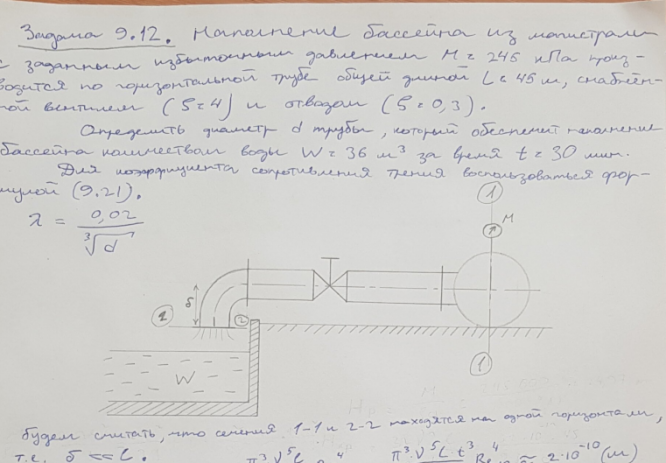 Задача 9.12. Наполнение бассейна из магистрали
с заданным избыточным давлением М = 245 кПа произ-
водится по горизонтальной трубе общей длиной L = 45 м, снабжён-
ной вентилем (ζ = 4) и отводом (ζ = 0,3).
Определить диаметр d трубы, который обеспечит наполнение
бассейна количеством воды W = 36 м³ за время t = 30 мин.
Для коэффициента сопротивления трения воспользоваться фор-
мулой (9.21).
λ = 0,02 / ∛d
1
М
δ
2
2
W
1
будем считать, что сечения 1-1 и 2-2 находятся на одной горизонтали,
т.е. δ << L.
π³ν⁵L π³·ν⁵L t³ ≈ 2·10⁻¹⁰ (м)